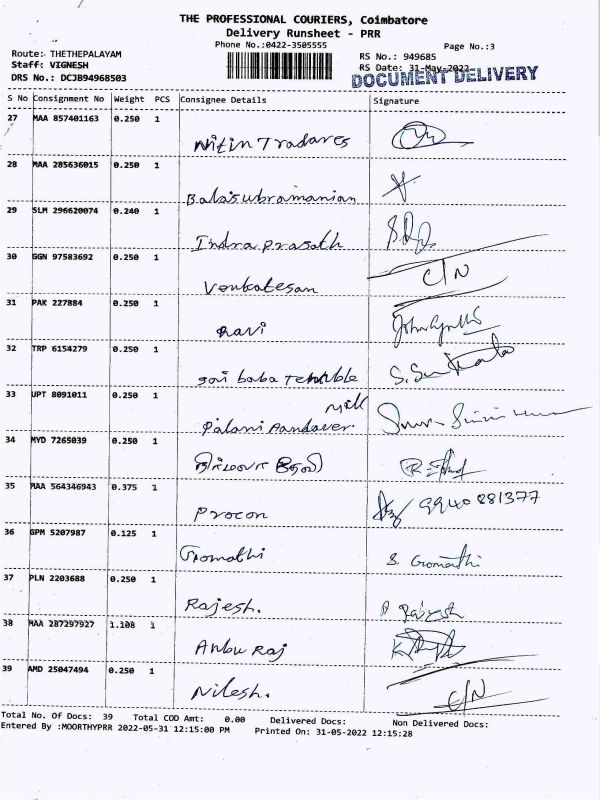 THE PROFESSIONAL COURIERS, Coimbatore
Delivery Runsheet - PRR
Phone No.:0422-3505555
Page No.:3
Route: THETHEPALAYAM
Staff: VIGNESH
DRS No.: DCJB94968503
RS No.: 949685
RS Date: 31-May-2022
DOCUMENT DELIVERY
S No Consignment No Weight PCS Consignee Details Signature
27 MAA 857401163 0.250 1
Nitin Tradares
28 MAA 285636015 0.250 1
Balasubramanian
29 SLM 296620074 0.240 1
Indra prasath
30 GGN 97583692 0.250 1
Venkatesan C/N
31 PAK 227884 0.250 1
Ravi
32 TRP 6154279 0.250 1
Sai baba
33 UPT 8091011 0.250 1
Mill
Palani Aandaver
34 MYD 7265039 0.250 1
தேவி
35 MAA 564346943 0.375 1
Procon 9940881377
36 GPM 5207987 0.125 1
Gomathi S. Gomathi
37 PLN 2203688 0.250 1
Rajesh. Rajesh
38 MAA 287297927 1.108 1
Anbu Raj
39 AMD 25047494 0.250 1
Nilesh. C/N
Total No. Of Docs: 39 Total COD Amt: 0.00 Delivered Docs: Non Delivered Docs:
Entered By :MOORTHYPRR 2022-05-31 12:15:00 PM Printed On: 31-05-2022 12:15:28